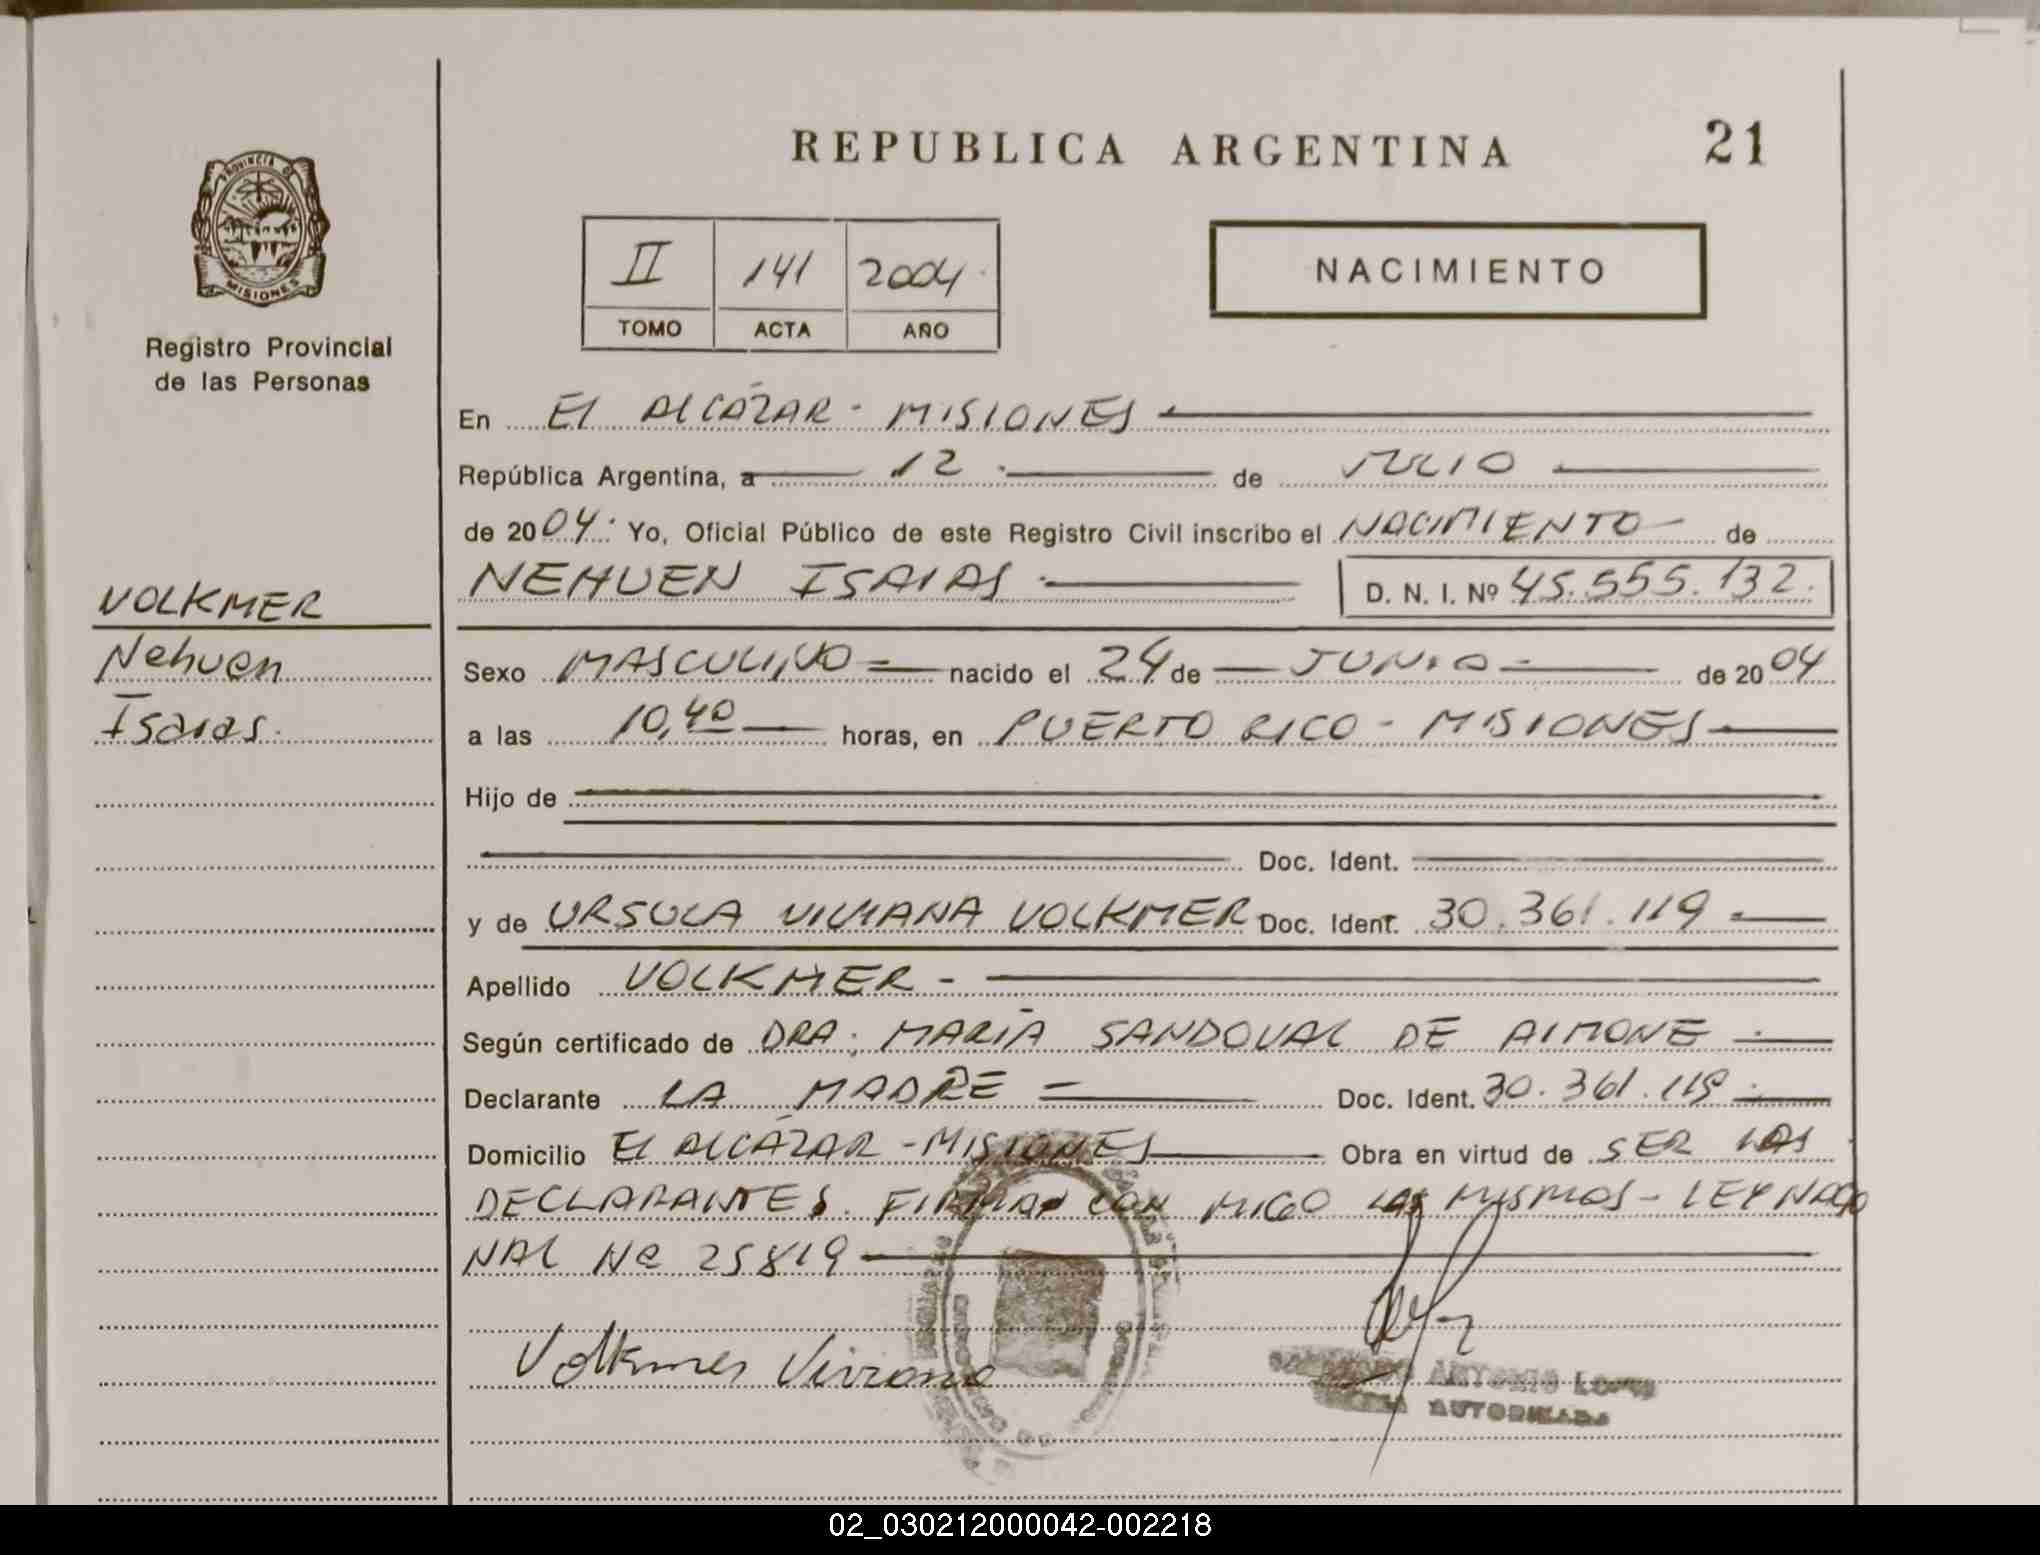 REPUBLICA ARGENTINA
21
PROVINCIA DE
MISIONES
Registro Provincial
de las Personas
II 141 2004
TOMO ACTA AÑO
NACIMIENTO
En El Alcázar - MISIONES
República Argentina, a 12 de JULIO
de 2004. Yo, Oficial Público de este Registro Civil inscribo el NACIMIENTO de
NEHUEN ISAIAS D. N. I. Nº 45.555.132.
VOLKMER
Nehuen
Isaias.
Sexo MASCULINO nacido el 24 de JUNIO de 2004
a las 10,40 horas, en PUERTO RICO - MISIONES
Hijo de
Doc. Ident.
y de URSULA VIVIANA VOLKMER Doc. Ident. 30.361.119
Apellido VOLKMER
Según certificado de DRA. MARÍA SANDOVAL DE AIMONE
Declarante LA MADRE Doc. Ident. 30.361.119
Domicilio El Alcázar - MISIONES Obra en virtud de SER LOS
DECLARANTES. FIRMAN CON MIGO LOS MISMOS - LEY NACIO
NAL Nº 25819
Volkmer Viviana
ANTONIO LOPEZ
AUTORIZADA
02_030212000042-002218